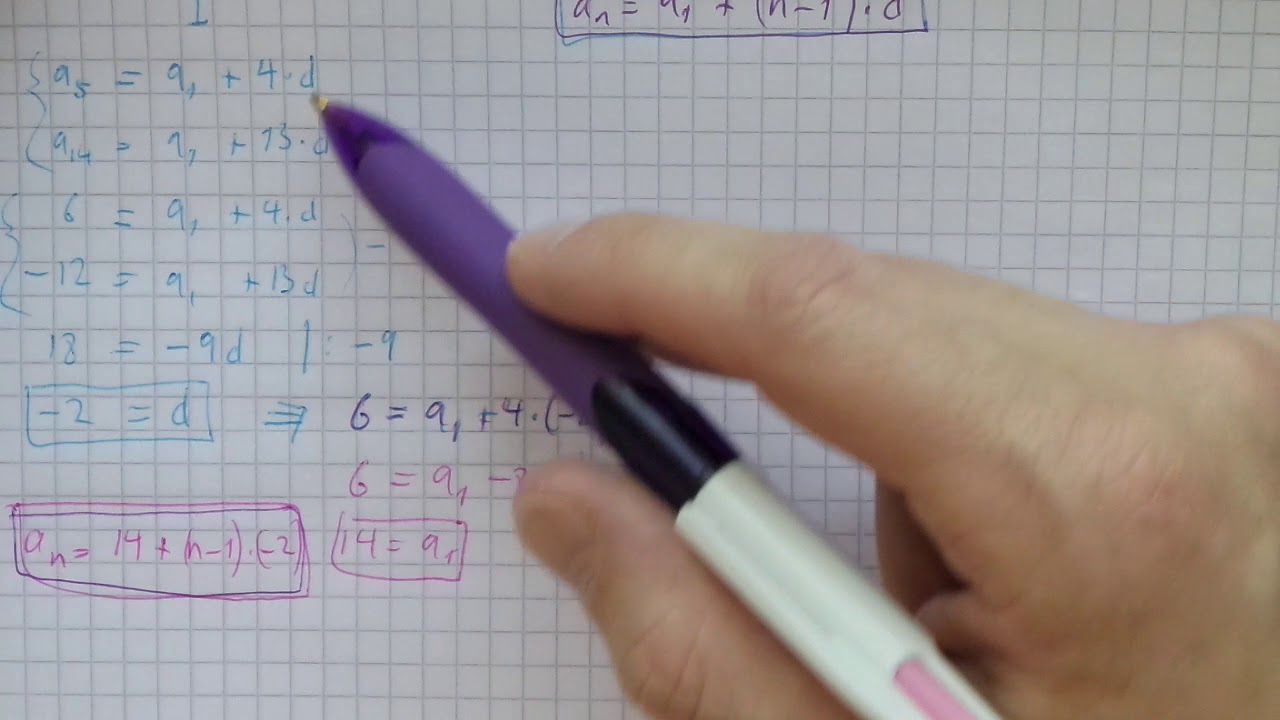 aₙ = a₁ + (n-1)·d
a₅ = a₁ + 4·d
a₁₄ = a₁ + 13·d
6 = a₁ + 4·d
-12 = a₁ + 13d
-
18 = -9d |: -9
-2 = d ⇒ 6 = a₁ + 4·(-
6 = a₁ -
aₙ = 14 + (n-1)·(-2) 14 = a₁